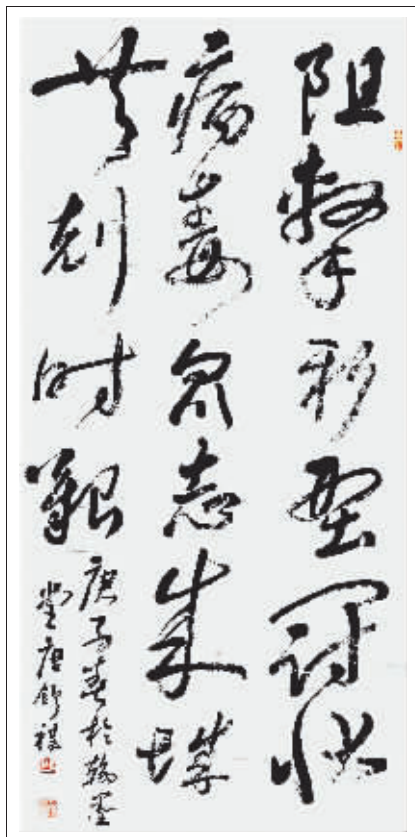 阻擊新型冠狀
病毒眾志成城
共剋时艱
庚子春於翰墨
堂唐舒祺